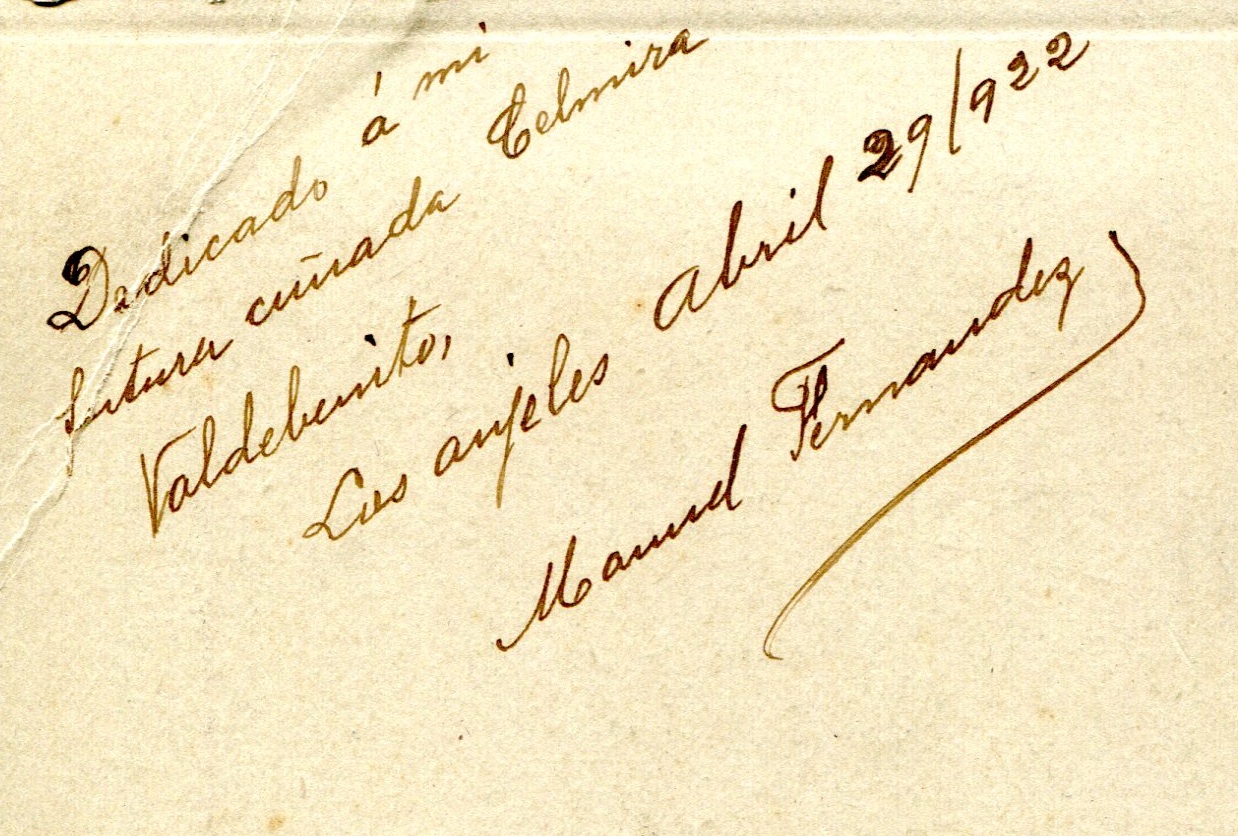 Dedicado á mi
futura cuñada Celmira
Valdebenito,
Los anjeles abril 29/922
Manuel Fernandez